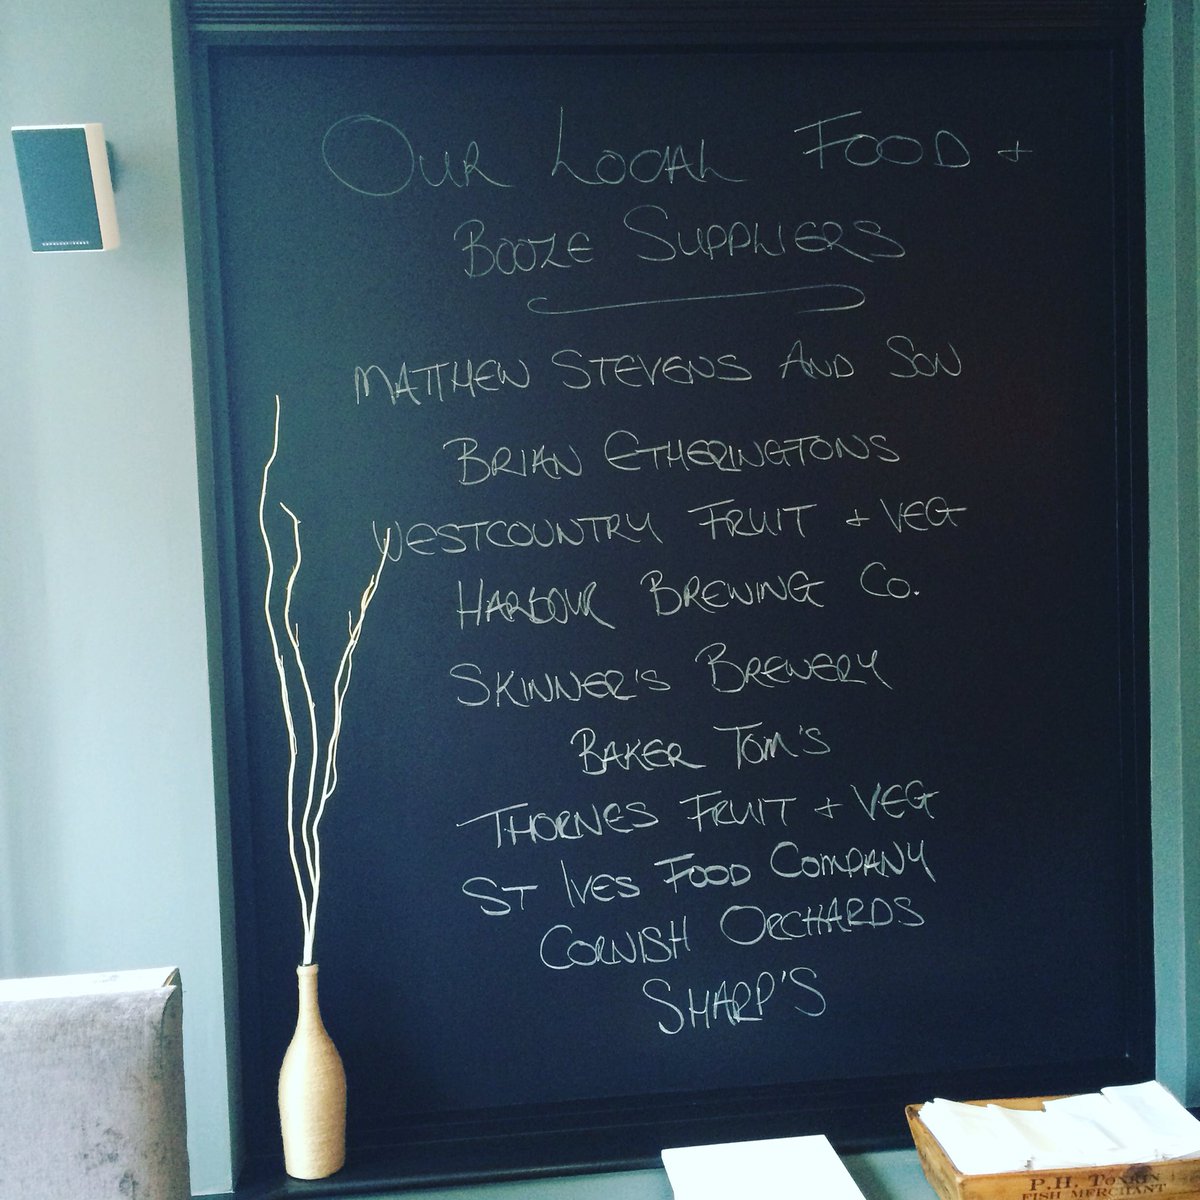 OUR LOCAL FOOD +
BOOZE SUPPLIERS
MATTHEW STEVENS AND SON
BRIAN ETHERINGTONS
WESTCOUNTRY FRUIT + VEG
HARBOUR BREWING CO.
SKINNER'S BREWERY
BAKER TOM'S
THORNES FRUIT + VEG
ST IVES FOOD COMPANY
CORNISH ORCHARDS
SHARP'S
P.H. TONKIN
FISH MERCHANT